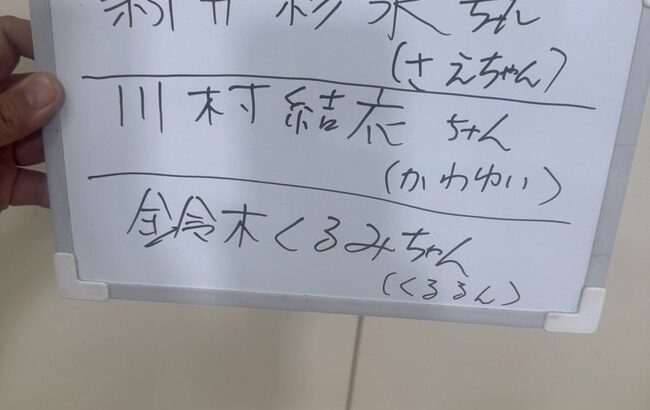 新井 彩永 ちゃん
(さえちゃん)
川村 結衣 ちゃん
(かわゆい)
鈴木くるみちゃん
(くるるん)